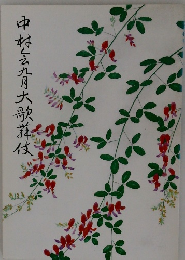 中村会九月大歌舞伎